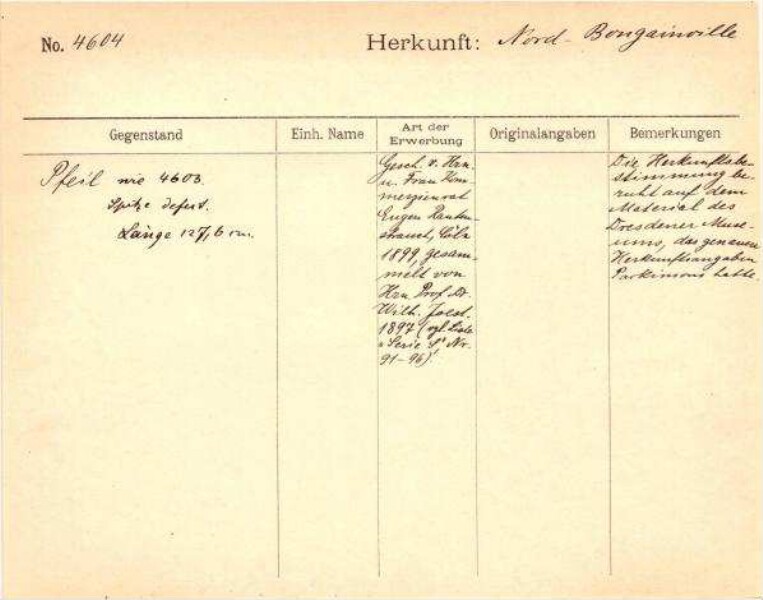 No. 4604
Herkunft: Nord-Bougainville
Gegenstand
Einh. Name
Art der
Erwerbung
Originalangaben
Bemerkungen
Pfeil wie 4603.
Spitze defect.
Länge 127,6 cm.
Gesch. v. Hrn.
u. Frau Kom-
merzienrat
Eugen Rauten-
strauch, Cöln
1899, gesam-
melt von
Hrn. Prof. Dr.
Wilh. Joest.
1897 (vgl. Liste
"Serie S" Nr.
91-96)!
Die Herkunftsbe-
stimmung be-
ruht auf dem
Material des
Dresdener Muse-
ums, das genauere
Herkunftsangaben
Parkinsons hatte.